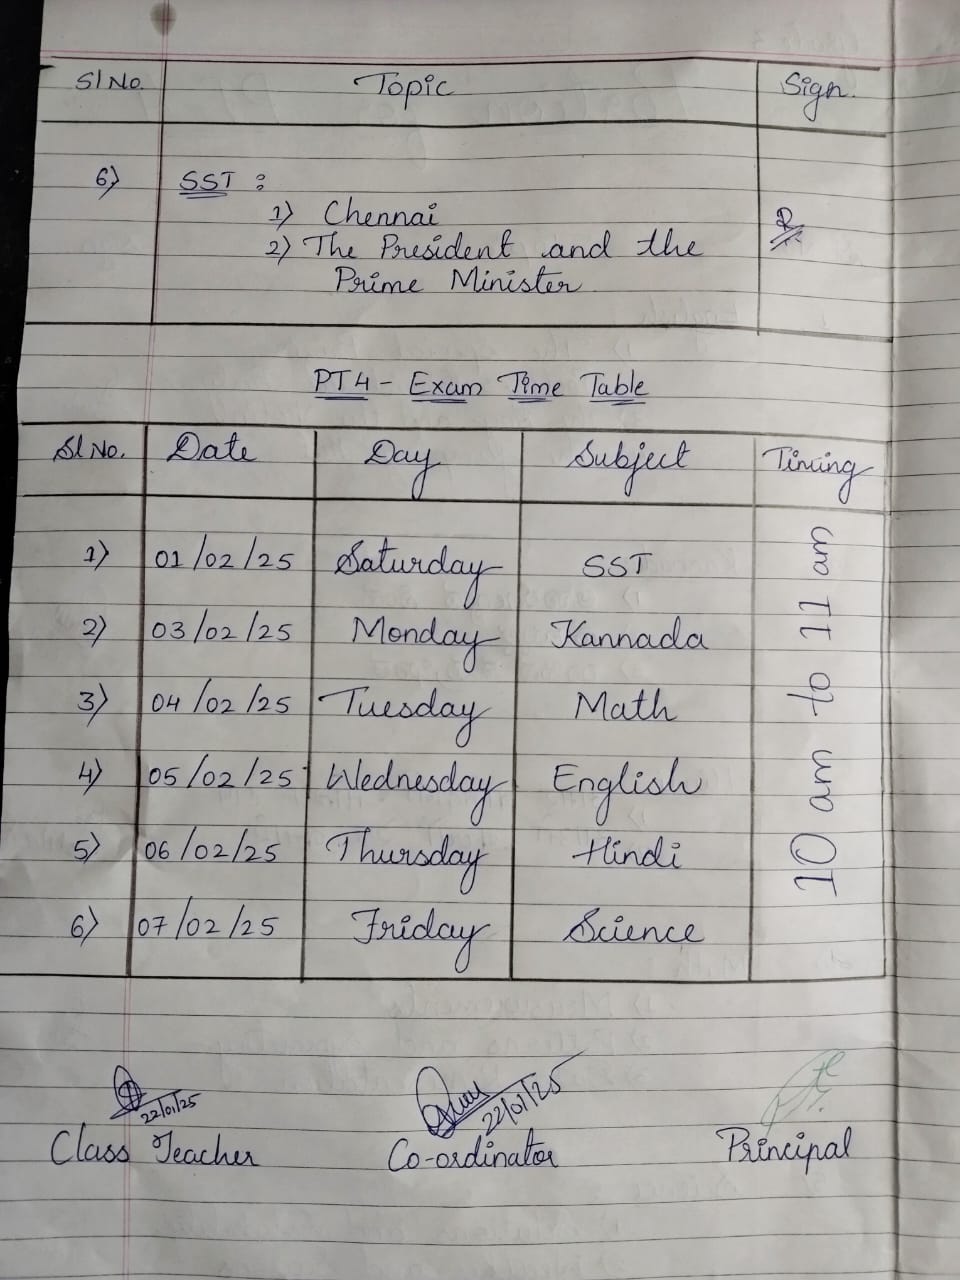 Sl No. Topic Sign.
6) SST :
1) Chennai
2) The President and the
Prime Minister
PT4 - Exam Time Table
Sl No. Date Day Subject Timing
1) 01/02/25 Saturday SST
2) 03/02/25 Monday Kannada
3) 04/02/25 Tuesday Math
4) 05/02/25 Wednesday English
5) 06/02/25 Thursday Hindi
6) 07/02/25 Friday Science
10 am to 11 am
22/01/25 22/01/25
Class Teacher Co-ordinator Principal